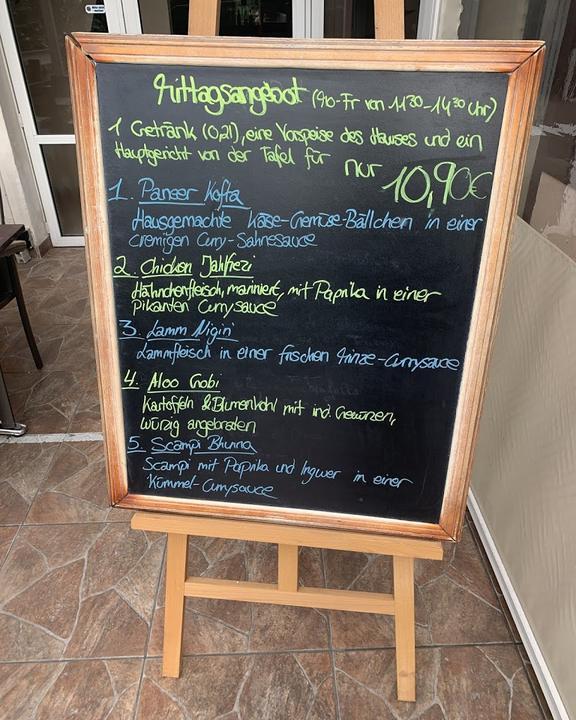 Mittagsangebot (Mo-Fr von 11:30-14:30 Uhr)
1 Getränk (0,2l), eine Vorspeise des Hauses und ein
Hauptgericht von der Tafel für nur 10,90€
1. Paneer Kofta
Hausgemachte Käse-Gemüse-Bällchen in einer
cremigen Curry-Sahnesauce
2. Chicken Jalfrezi
Hähnchenfleisch, mariniert, mit Paprika in einer
Pikanten Currysauce
3. Lamm Nigiri
Lammfleisch in einer frischen Minze-Currysauce
4. Aloo Gobi
Kartoffeln & Blumenkohl mit ind. Gewürzen,
würzig angebraten
5. Scampi Bhunna
Scampi mit Paprika und Ingwer in einer
Kümmel-Currysauce